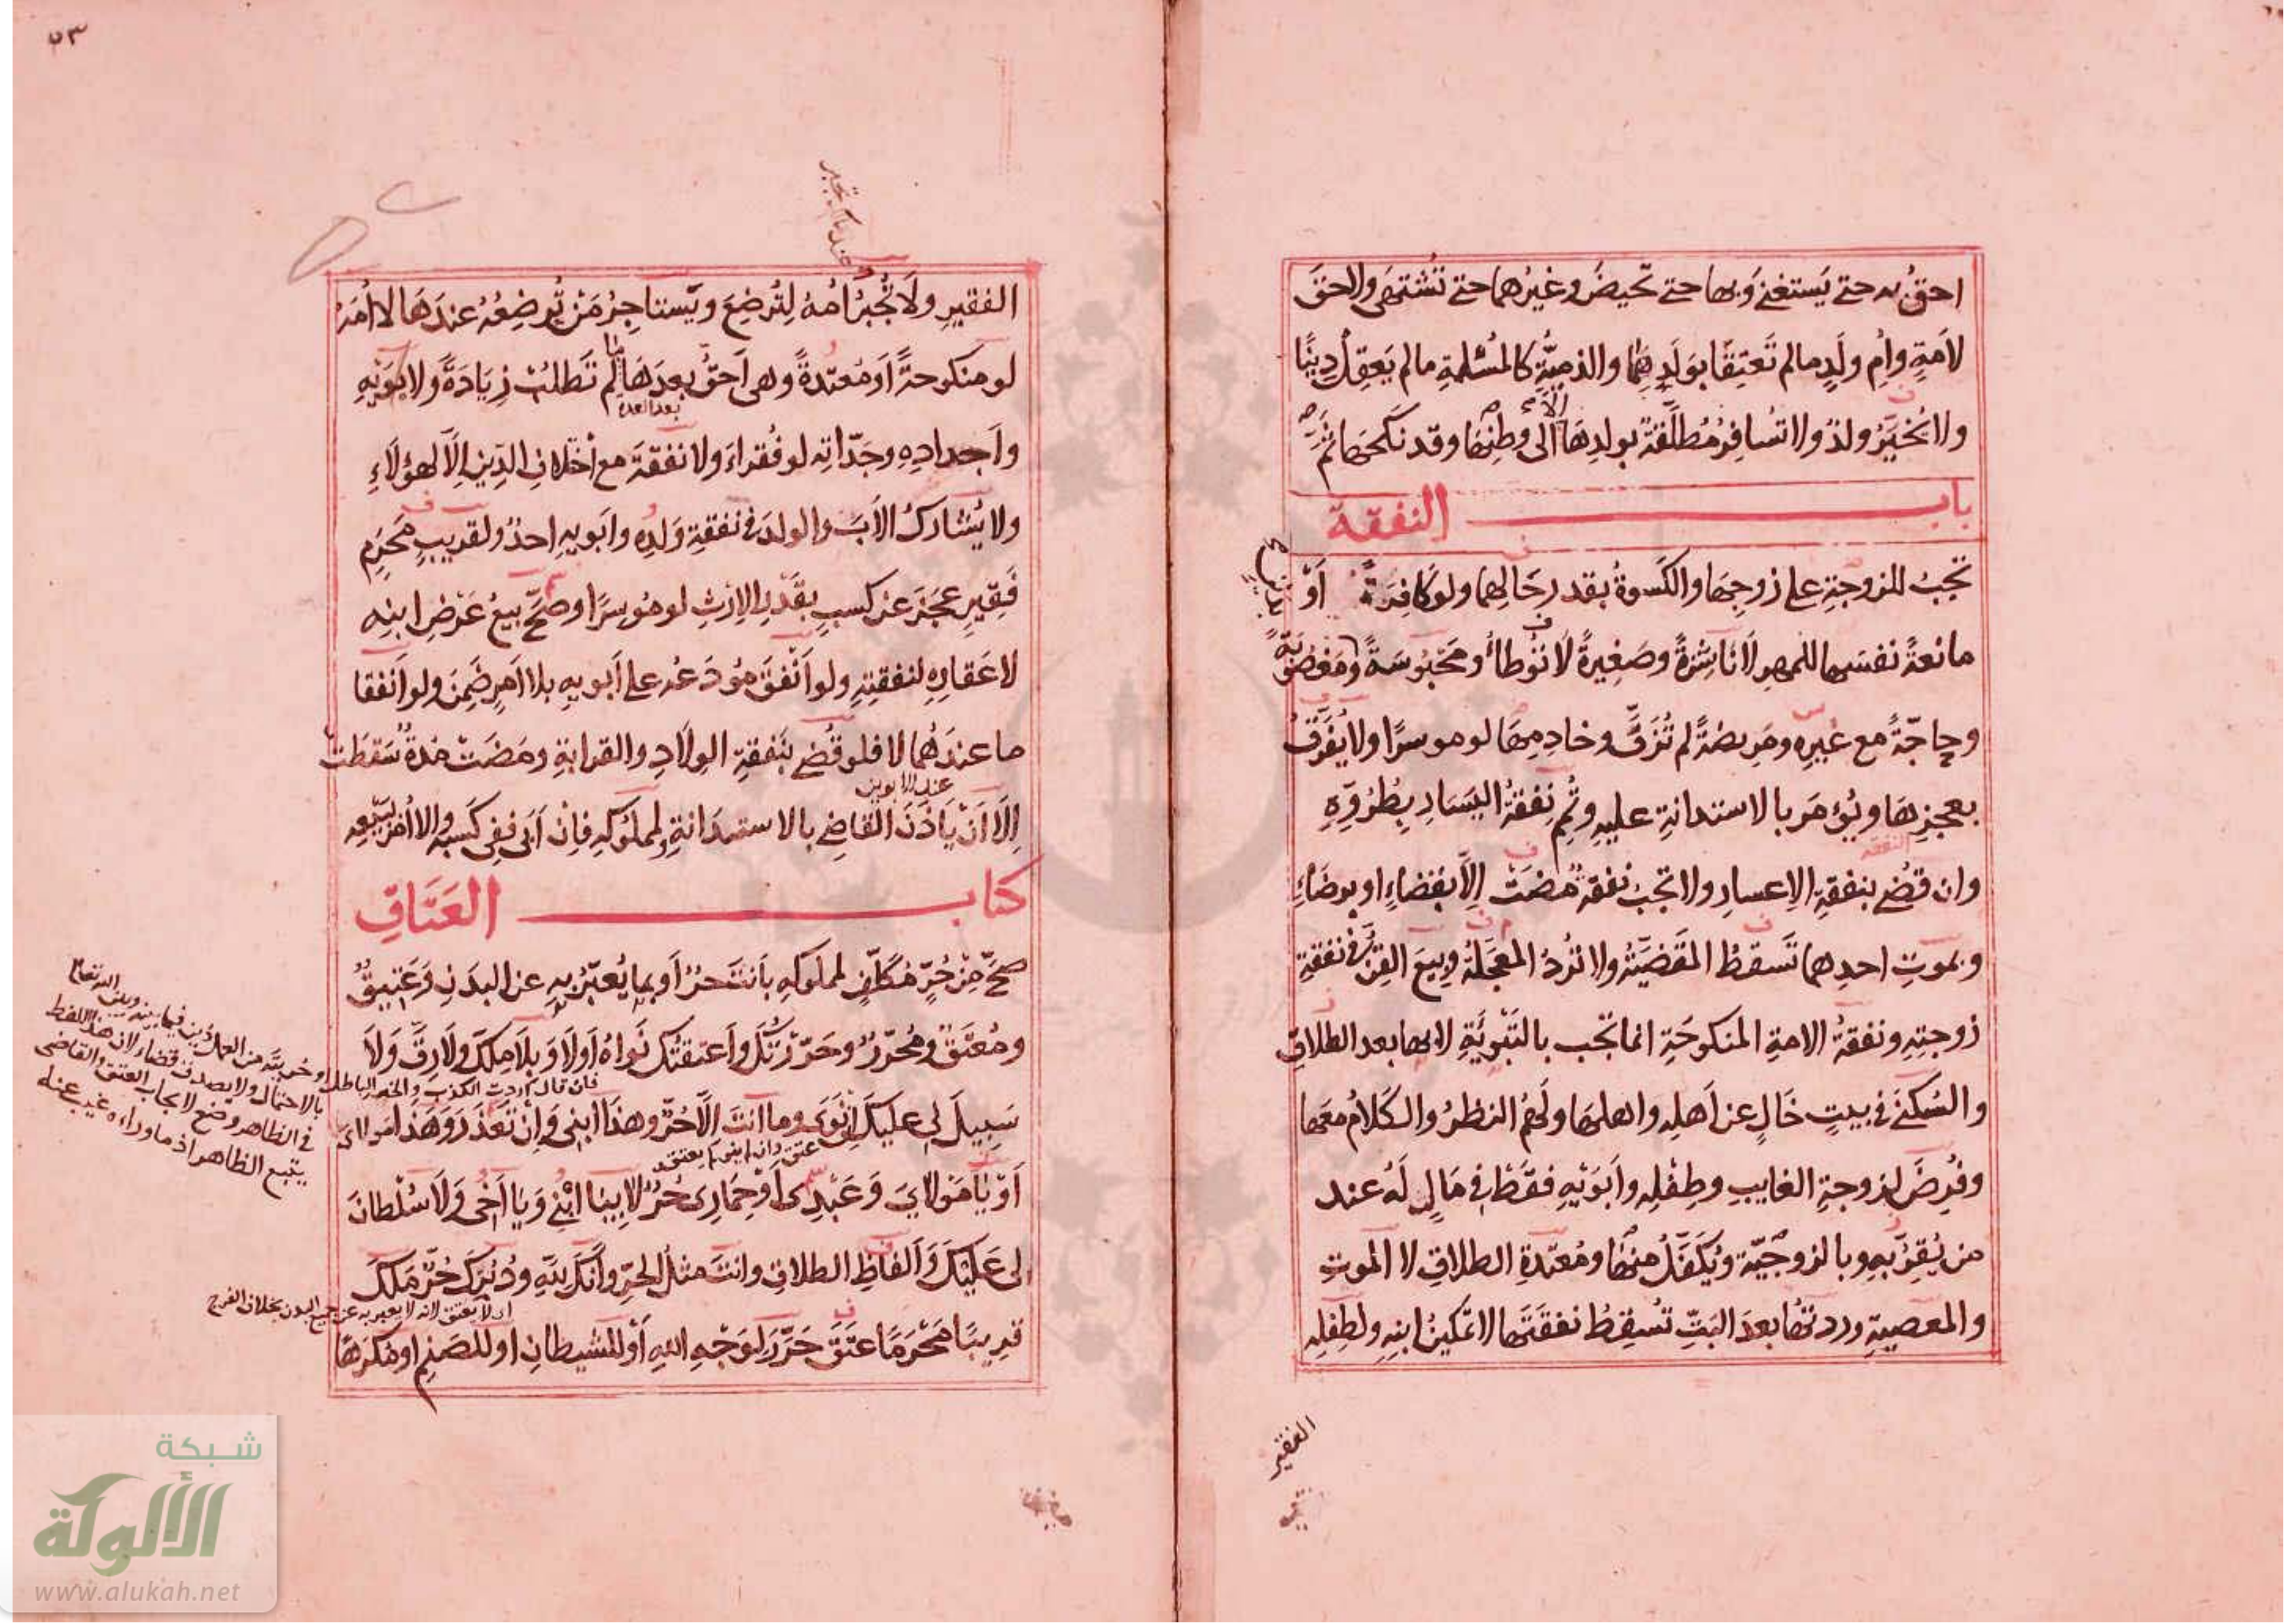 احق به حتى يَستغنى وَبها حتى تحيضَ وغيرُهما حتى تُشتهى ولا حقَ
لامَةٍ وامِ ولَدٍ مالم تَعتِقَا بوَلَدِهِمَا والذميَّةِ كالمسْلمةِ مالم يَعقِلْ دِينًا
ولا يُخيَّرُ ولدُ ولا تُسافِرُ مُطلَّقةٌ بولدِهَا الا الى وطنِهَا وقد نكحَهَا ثَمَّ
باب النفقة
تجبُ للزوجةِ على زوجِهَا والكسوةُ بقدر حَالِهما ولو كَافِرَةً أَوْ
مانعةً نفسَها للمهرِ لا ناشِزةً وصَغِيرةً لا تُوطأُ ومَحبُوسَةً ومَغصُوبَةً
بدين
وحاجّةً مع غيرِه ومَرِيضةً لم تُزَفَّ وخادِمِهَا لو موسرًا ولا يُفَرَّقُ
بعجزِهَا ويُؤمَر بالاستدانةِ عليهِ وتُمِّ نفقةُ اليَسَارِ بِطُرُوّهِ
وان قُضى بنفقةِ الاعسارِ ولا تجبُ نفقةٌ مُضَتْ الّا بقضاءٍ او برضَاءٍ
النفقه
وبموتِ احدِهما تَسقطُ المقضيَّةُ ولا تُردُ المعجَلةُ وبِيعَ القِنُّ في نفقةِ
زوجتِهِ ونفقةُ الامةِ المنكوحَةِ انما تجب بالتَبْوِئَةِ لا بها بعد الطلاقِ
والسُكنىَ في بيتٍ خَالٍ عن اَهلِه واهلِهَا ولَهُمُ النظرُ والكَلامُ معَها
وفُرِضَ لزوجةِ الغايبِ وطِفْلِه وأبَوَيْهِ فقَطْ في مَالٍ لَهُ عند
من يُقِرُّ بهِ وبالزوجيّةِ ويُكَفَّلُ منهَا ومُعتّدةِ الطلاقِ لا الموتِ
والمعصيةِ وردتُها بعدَ البَتِّ تُسقِطُ نفقَتَها لا تمكينُ ابنِهِ ولطِفلِه
الفقير
٥٣
الفقيرِ ولَا تُجبَرُ اُمهُ لِتُرضِعَ ويَستاجِرُ مَنْ تُرضِعُهُ عندَهَا لا اُمَهُ
لو منكوحةً اَو مُعتدّةً وهى اَحقُّ بعدَهَا ما لم تَطلبْ زِيَادَةً ولابوَيْهِ
بعد العدة
واَجدادِهِ وجَدّاتِه لو فُقراءَ ولا نفقةَ مع اختلافِ الدِّينِ الّا لهؤلَاءِ
ولا يُشارَكُ الاَبَ والولدَ في نفقةِ وَلَدِه وابَويهِ احدٌ ولقريبٍ مَحرَمٍ
فَقِيرٍ عجَزَ عن كسبٍ بِقَدْرِ الارْثِ لو مُوسِرًا وصَحَّ بيعُ عَرْضِ ابنِه
لا عَقارِه لنفقتِهِ ولو اَنفَقَ مُودَعُه على اَبويهِ بلا اَمرٍ ضَمِنَ ولو اَنفقا
ما عندَهُما لا فلو قُضى بنَفقةِ الوِلادِ والقرابةِ ومَضَتْ مدةٌ سَقطَتْ
عند الابوين
اِلّا اَنْ يَاذَنَ القاضِى بالاستدَانةِ ولمملُوكِهِ فاِنْ اَبى ففى كَسبِهِ والا اُمرَ ببَيْعِه
كتاب العَتَاقِ
صَحَّ مِنْ حُرٍّ مُكَلَّفٍ لمملوكِهِ بأنتَ حرٌ اَو بما يُعبّرُ بهِ عن البدَنِ وَعَتيقٌ
ومُعتَقٌ ومُحرّرٌ وحَرّرْتُكَ واَعتقتُكَ نَواهُ اَولَا وَبلَا مِلكَ ولَا رِقَّ وَلَا
فان قال اردت الكذب والخبر الباطل او حريته من العمل دين فيما بينه وبين الله تعالى
بالاحتمال ولا يصدق قضاء لان هذا اللفظ
في الظاهر وضع لايجاب العتق والقاضى
يتبع الظاهر اذ ما وراءه غيب عنه
سَبِيلَ لِى عليكَ اِنْ نَوَى وما انتَ الّا حُرٌّ وهذَا ابنِى وَاِنْ تعَذّرَ وَهَذا مَولاىَ
عتق وان لم ينو لم يعتق
اَوْ يَا مَوْلايَ وَعَبْدِى اَوْ حِمَارِى حُرٌّ لا بِيَا ابْنِى وَيَا اَخِى وَلَا سُلْطانَ
لِى عَلَيْكَ وَاَلفاظِ الطلاقِ وانتَ مثلُ الحرِّ وَدُبُرُكَ حُرٌّ مَلَكَ
لا يعتق لانه لا يعبر به عن جميع البدن بخلاف الفرج
قرِيبًا مَحْرَمًا عتَقَ حَرَّرَ لوَجْهِ اللهِ اَوْ للشيطانِ او للصَنمِ او مُكرَهًا
شبكة
الألوكة
www.alukah.net